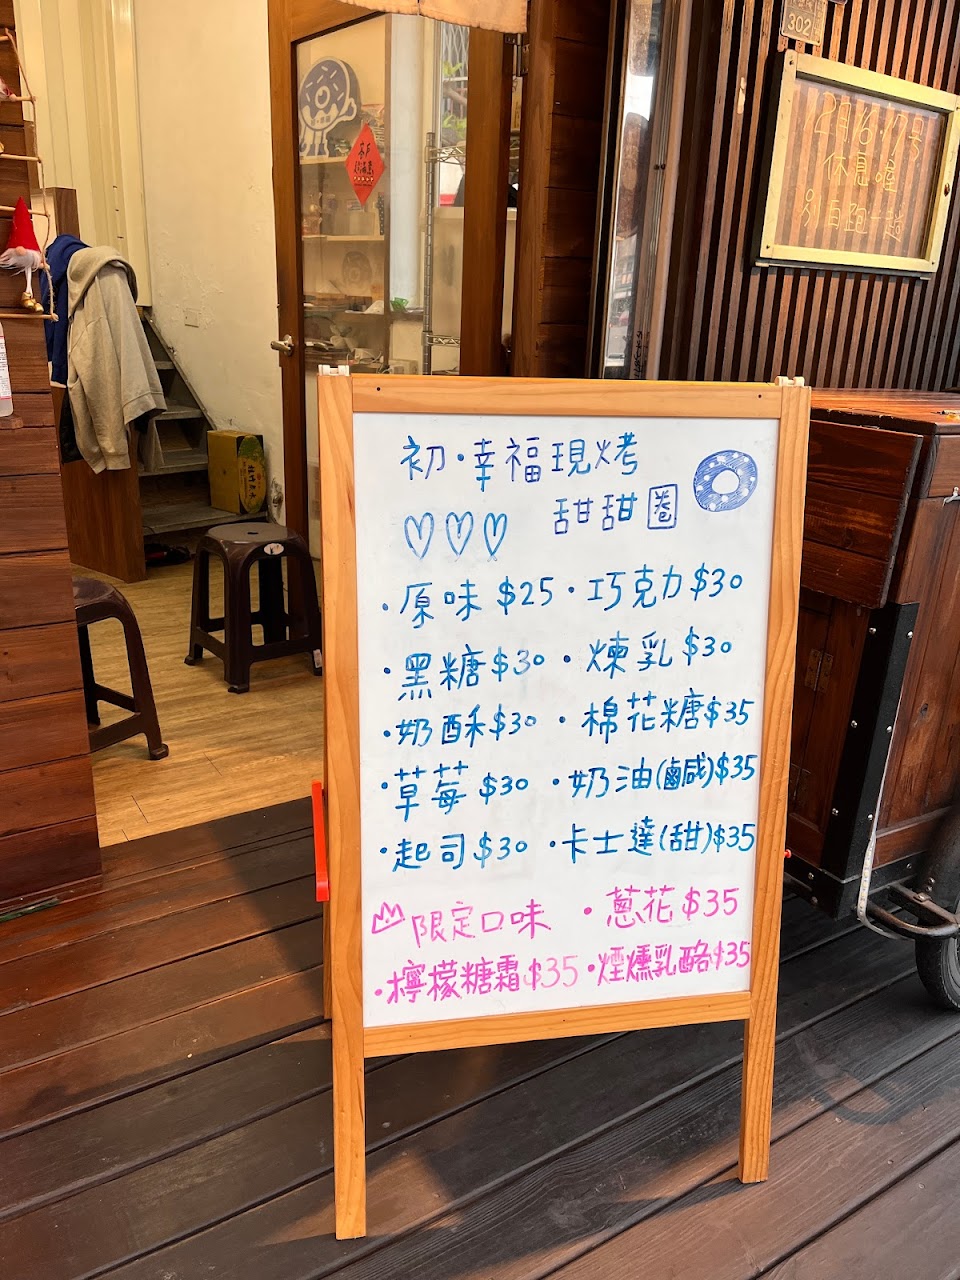 302
2月16.17号
休息喔
別白跑一趟
初·幸福現烤
甜甜圈
·原味 $25 ·巧克力 $30
·黑糖 $30 ·煉乳 $30
·奶酥 $30 ·棉花糖 $35
·草莓 $30 ·奶油(鹹) $35
·起司 $30 ·卡士達(甜) $35
限定口味 ·蔥花 $35
·檸檬糖霜 $35 ·煙燻乳酪 $35